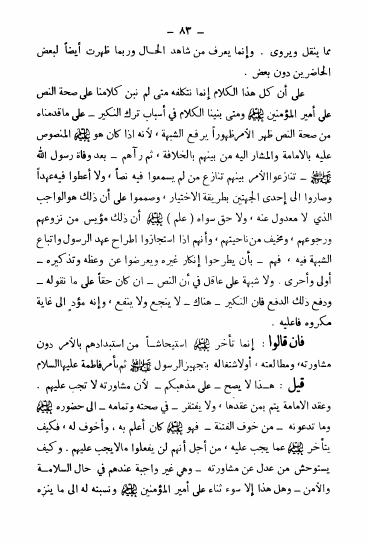 – ٨٣ –
مما ينقل ويروى . وإنما يعرف من شاهد الحال وربما ظهرت أيضاً لبعض
الحاضرين دون بعض .
على أن كل هذا الكلام إنما نتكلفه متى لم نبن كلامنا على صحة النص
على أمير المؤمنين ومتى بنينا الكلام في أسباب ترك النكير – على ماقدمناه
من صحة النص ظهر الأمر ظهوراً يرفع الشبهة ، لأنه اذا كان هو المنصوص
عليه بالامامة والمشار اليه من بينهم بالخلافة ، ثم رآهم – بعد وفاة رسول الله
– تنازعوا الأمر بينهم تنازع من لم يسمعوا فيه نصاً ، ولا أعطوا فيه عهداً
وصاروا الى إحدى الجهتين بطريقة الاختيار ، وصمموا على أن ذلك هو الواجب
الذي لا معدول عنه ، ولا حق سواه ( علم ) أن ذلك مؤيس من نزوعهم
ورجوعهم ، ومخيف من ناحيتهم ، وأنهم اذا استجازوا اطراح عهد الرسول واتباع
الشبهة فيه ، فهم – بأن يطرحوا إنكار غيره ويعرضوا عن وعظه وتذكيره –
أولى وأحرى . ولا شبهة على عاقل في أن النص – ان كان حقاً على ما نقوله –
ودفع ذلك الدفع فان النكير – هناك – لا ينجع ولا ينفع ، وإنه مؤد الى غاية
مكروه فاعليه .
فان قالوا : إنما تأخر استيحاشاً من استبدادهم بالأمر دون
مشاورته ، ومطالعته ، أو لاشتغاله بتجهيز الرسول ثم بأمر فاطمة عليها السلام
قيل : هـذا لا يصح – على مذهبكم – لأن مشاورته لا تجب عليهم .
وعقد الامامة يتم بمن عقدها ، ولا يفتقر – في صحته وتمامه – الى حضوره
وما تدعونه – من خوف الفتنة – فهو كان أعلم به ، وأخوف له ، فكيف
يتأخر عما يجب عليه ، من أجل أنهم لن يفعلوا مالايجب عليهم . وكيف
يستوحش من عدل عن مشاورته – وهي غير واجبة عندهم في حال السلامة
والأمن – وهل هذا إلا سوء ثناء على أمير المؤمنين ونسبته له الى ما ينزه